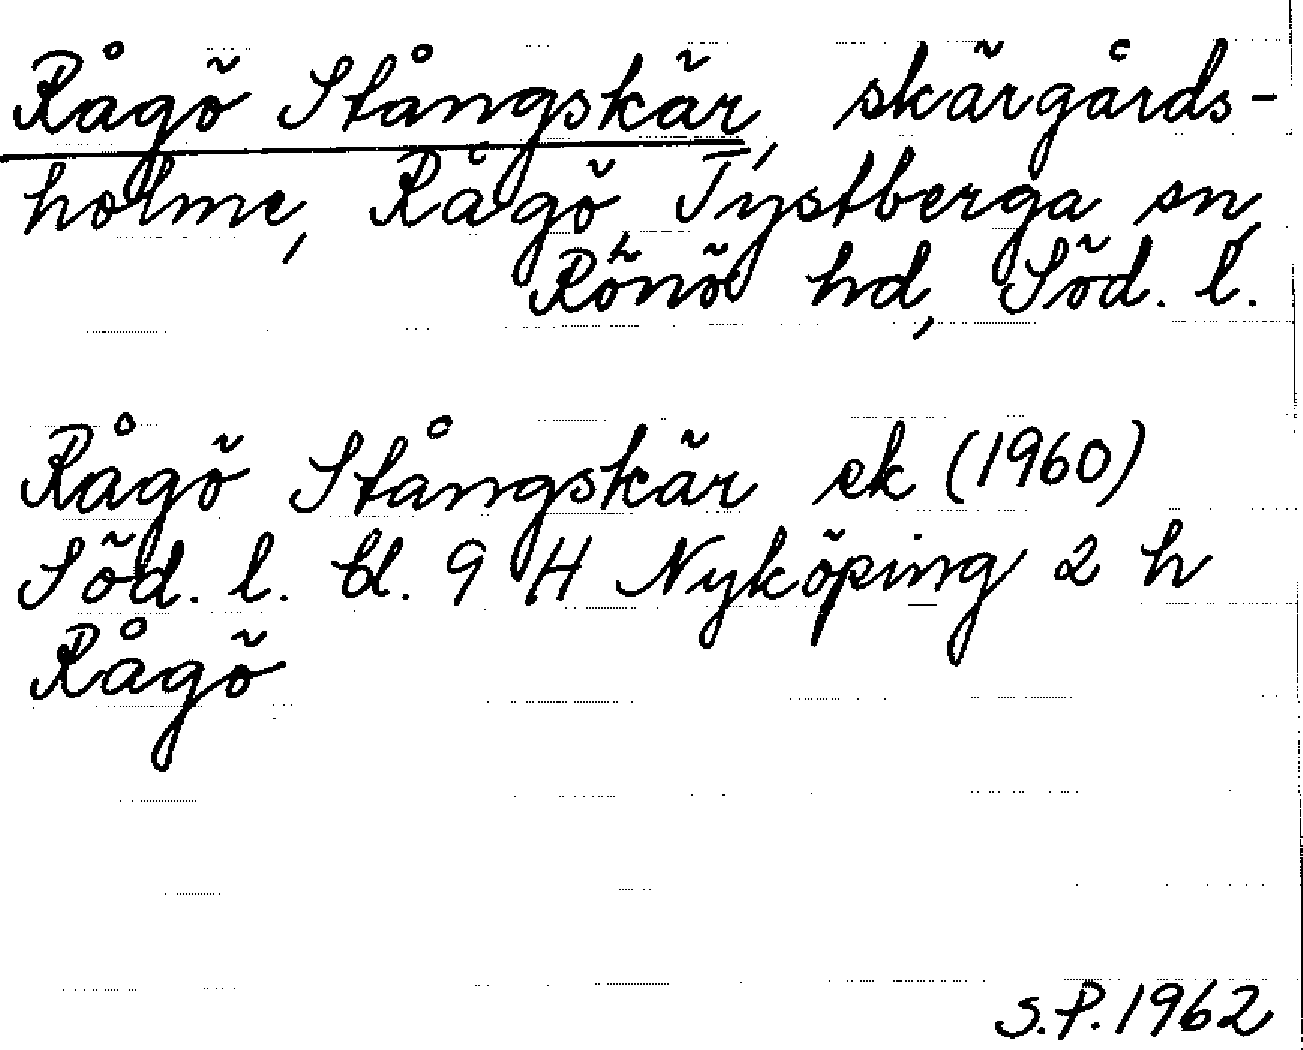 Rågö Stångskär, skärgårds-
holme, Rågö, Tystberga sn,
Rönö hd, Söd. l.
Rågö Stångskär ek (1960)
Söd. l. bl. 9 H Nyköping 2 h
Rågö
S.P. 1962